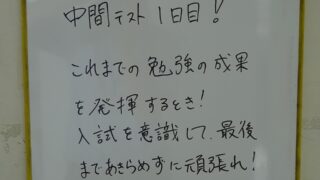 中間テスト1日目!
これまでの勉強の成果
を発揮するとき!
入試を意識して、最後
まであきらめずに頑張れ!